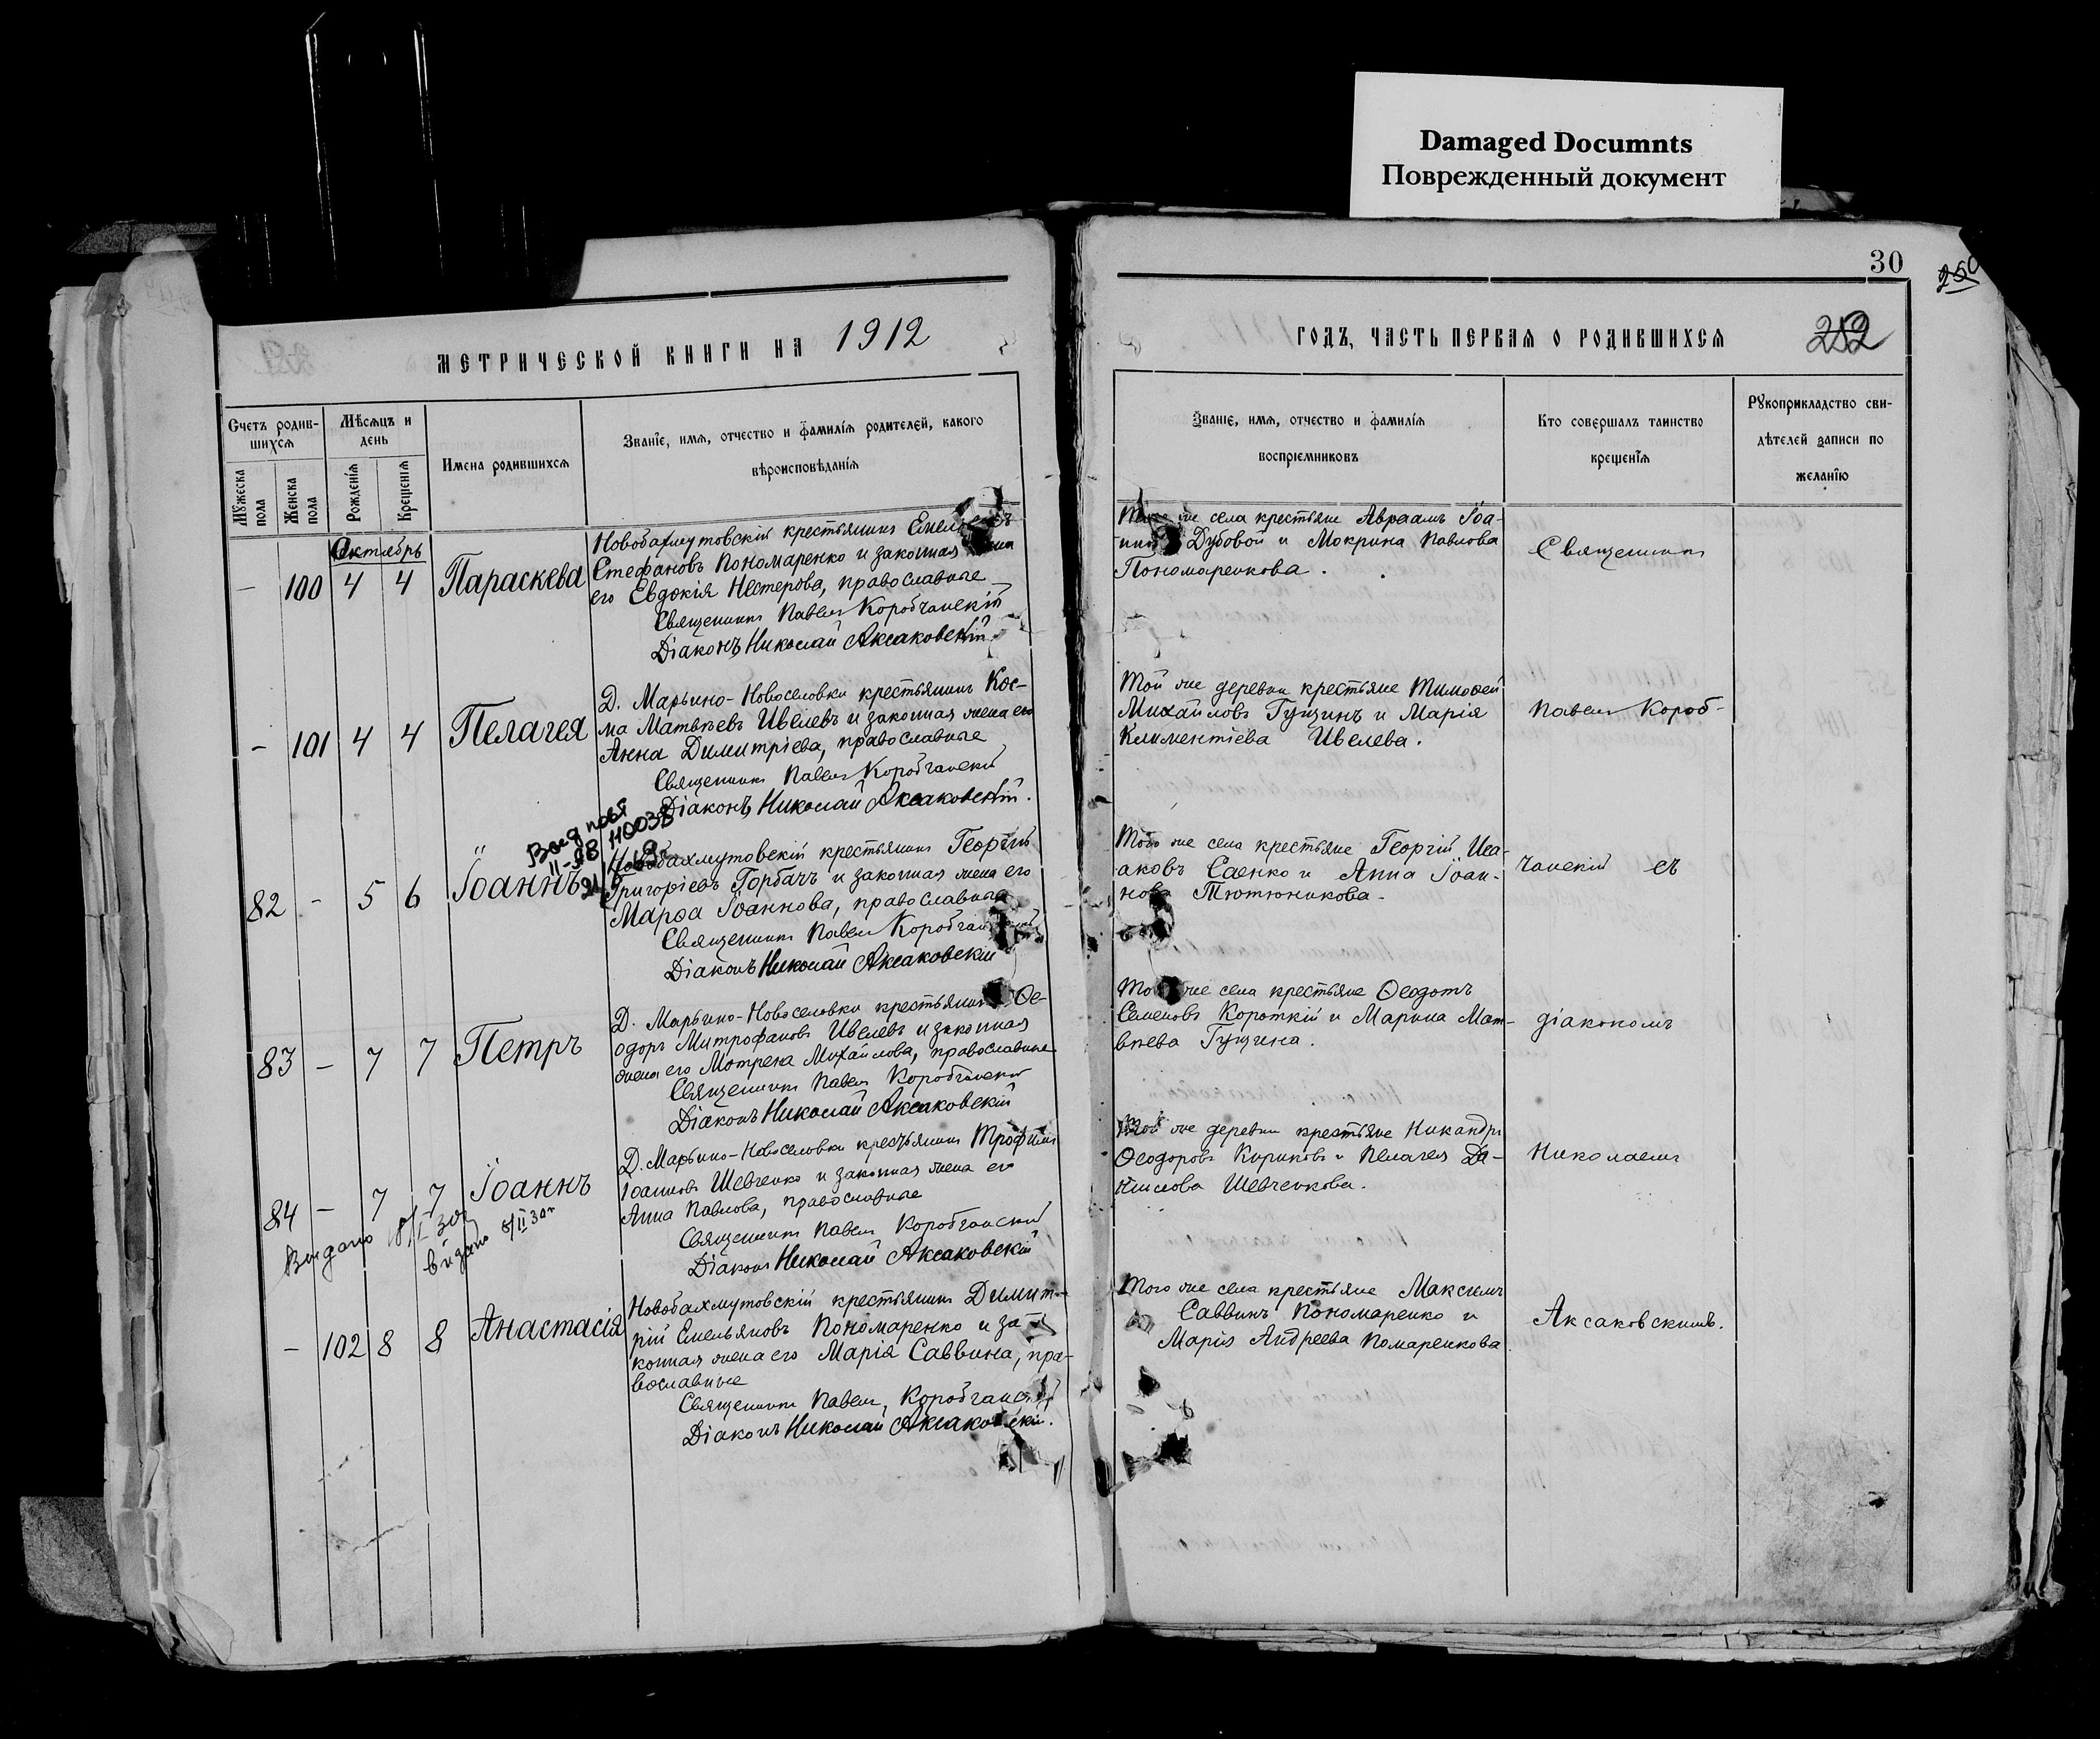 Damaged Documnts
Поврежденный документ
30
252
МЕТРИЧЕСКОЙ КНИГИ НА 1912
Счетъ родив-
шихся
Мѣсяцъ и
день
Мужеска
пола
Женска
пола
Рожденія
Крещенія
Имена родившихся
Званіе, имя, отчество и фамилія родителей, какого
вѣроисповѣданія
Октябрь
– 100 4 4 Параскева
Новобахмутовскій крестьянинъ
Стефановъ Пономаренко и законная жена
его Евдокія Нестерова, православные
Священникъ Павелъ Коробчанскій
Діаконъ Николай Аксаковскій
– 101 4 4 Пелагея
Д. Марьино-Новоселовки крестьянинъ Кос-
ма Матвѣевъ Ивелевъ и законная жена его
Анна Димитріева, православные
Священникъ Павелъ Коробчанскій
Діаконъ Николай Аксаковскій.
82 – 5 6 Іоаннъ
Новобахмутовскій крестьянинъ Георгій
Григоріевъ Горбачъ и законная жена его
Марѳа Іоаннова, православные
Священникъ Павелъ Коробчанскій
Діаконъ Николай Аксаковскій
83 – 7 7 Петръ
Д. Марьино-Новоселовки крестьянинъ Ѳе-
одоръ Митрофановъ Ивелевъ и законная
жена его Мотрена Михайлова, православные
Священникъ Павелъ Коробчанскій
Діаконъ Николай Аксаковскій
84 – 7 7 Іоаннъ
Д. Марьино-Новоселовки крестьянинъ Трофимъ
Іоанновъ Шевченко и законная жена его
Анна Павлова, православные
Священникъ Павелъ Коробчанскій
Діаконъ Николай Аксаковскій
Выдано
видано 8/II 30 г
– 102 8 8 Анастасія
Новобахмутовскій крестьянинъ Димит-
рій Емельяновъ Пономаренко и за-
конная жена его Марія Саввина, пра-
вославные
Священникъ Павелъ Коробчанскій
Діаконъ Николай Аксаковскій.
ГОДЪ, ЧАСТЬ ПЕРВАЯ О РОДИВШИХСЯ
Званіе, имя, отчество и фамилія
воспріемниковъ
Кто совершалъ таинство
крещенія
Рукоприкладство сви-
дѣтелей записи по
желанію
Того же села крестьяне Авраамъ Іоан-
Дубовой и Мокрина Павлова
Пономаренкова.
Той же деревни крестьяне Тимоѳей
Михайловъ Гущинъ и Марія
Климентіева Ивелева.
Того же села крестьяне Георгій Иса-
аковъ Саенко и Анна Іоан-
нова Тютюникова.
Того же села крестьяне Ѳеодотъ
Семеновъ Короткій и Марина Мат-
вѣева Гущина.
Той же деревни крестьяне Никандръ
Ѳеодоровъ Кириковъ и Пелагея Да-
ниилова Шевченкова.
Того же села крестьяне Максимъ
Саввинъ Пономаренко и
Марія Андреева Помаренкова
Священникъ
Павелъ Короб-
чанскій съ
діакономъ
Николаемъ
Аксаковскимъ.